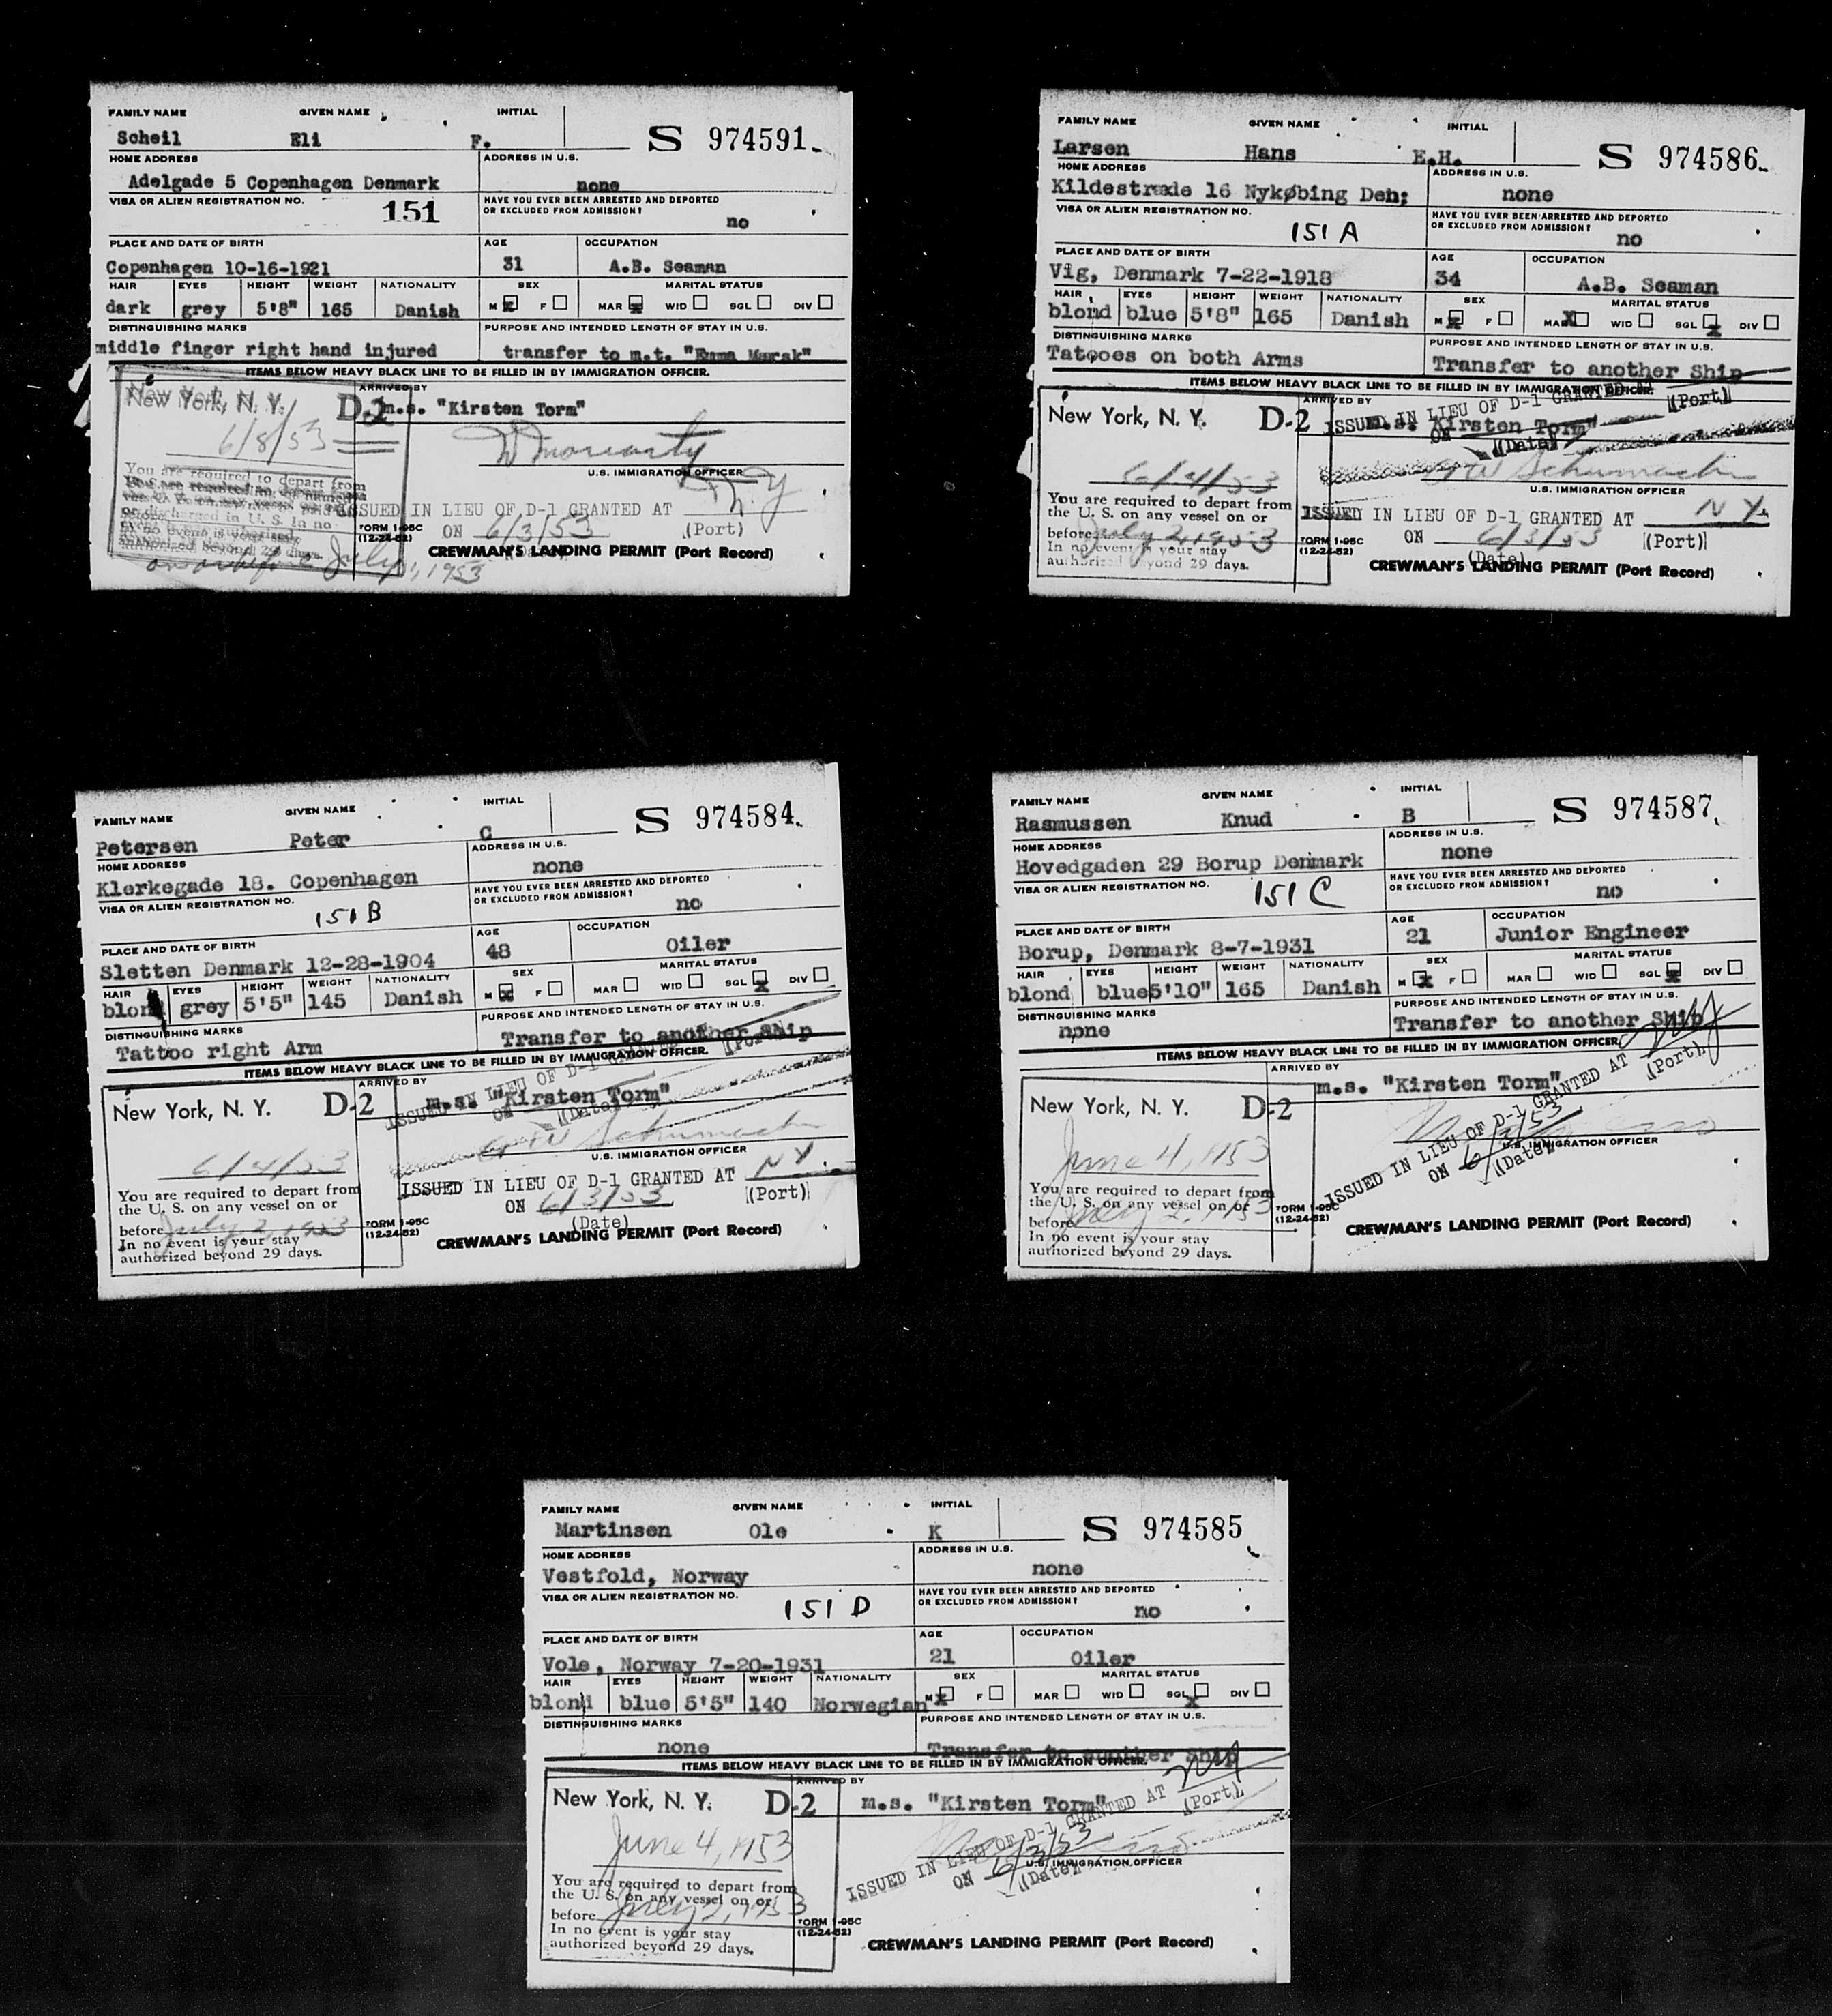 FAMILY NAME GIVEN NAME INITIAL
Scheil Eli F. S 974591
HOME ADDRESS ADDRESS IN U.S.
Adelgade 5 Copenhagen Denmark none
VISA OR ALIEN REGISTRATION NO. HAVE YOU EVER BEEN ARRESTED AND DEPORTED
151 OR EXCLUDED FROM ADMISSION? no
PLACE AND DATE OF BIRTH AGE OCCUPATION
Copenhagen 10-16-1921 31 A.B. Seaman
HAIR EYES HEIGHT WEIGHT NATIONALITY SEX MARITAL STATUS
dark grey 5'8" 165 Danish M x F MAR x WID SGL DIV
DISTINGUISHING MARKS PURPOSE AND INTENDED LENGTH OF STAY IN U.S.
middle finger right hand injured transfer to m.t. "Emma Mærsk"
ITEMS BELOW HEAVY BLACK LINE TO BE FILLED IN BY IMMIGRATION OFFICER.
New York, N. Y. D-2 ARRIVED BY
m.s. "Kirsten Torm"
6/8/53
W Moriarty
U.S. IMMIGRATION OFFICER
You are required to depart from
ISSUED IN LIEU OF D-1 GRANTED AT N.Y
FORM I-95C ON 6/3/53 (Port)
(12-24-52)
authorized beyond 29 days.
CREWMAN'S LANDING PERMIT (Port Record)
on or before July 1, 1953
FAMILY NAME GIVEN NAME INITIAL
Larsen Hans E.H. S 974586
HOME ADDRESS ADDRESS IN U.S.
Kildestræde 16 Nykøbing Den; none
VISA OR ALIEN REGISTRATION NO. HAVE YOU EVER BEEN ARRESTED AND DEPORTED
151 A OR EXCLUDED FROM ADMISSION? no
PLACE AND DATE OF BIRTH AGE OCCUPATION
Vig, Denmark 7-22-1918 34 A.B. Seaman
HAIR EYES HEIGHT WEIGHT NATIONALITY SEX MARITAL STATUS
blond blue 5'8" 165 Danish M x F MAR x WID SGL x DIV
DISTINGUISHING MARKS PURPOSE AND INTENDED LENGTH OF STAY IN U.S.
Tatooes on both Arms Transfer to another Ship
ITEMS BELOW HEAVY BLACK LINE TO BE FILLED IN BY IMMIGRATION OFFICER.
New York, N. Y. D-2 ARRIVED BY
ISSUED IN LIEU OF D-1 GRANTED AT (Port)
m.s. "Kirsten Torm"
ON (Date)
6/4/53
W Schumach
U.S. IMMIGRATION OFFICER
You are required to depart from
the U. S. on any vessel on or
before July 2, 1953
In no event is your stay
authorized beyond 29 days.
ISSUED IN LIEU OF D-1 GRANTED AT NY
FORM I-95C ON 6/3/53 (Port)
(12-24-52) (Date)
CREWMAN'S LANDING PERMIT (Port Record)
FAMILY NAME GIVEN NAME INITIAL
Petersen Peter C S 974584
HOME ADDRESS ADDRESS IN U.S.
Klerkegade 18. Copenhagen none
VISA OR ALIEN REGISTRATION NO. HAVE YOU EVER BEEN ARRESTED AND DEPORTED
151 B OR EXCLUDED FROM ADMISSION? no
PLACE AND DATE OF BIRTH AGE OCCUPATION
Sletten Denmark 12-28-1904 48 Oiler
HAIR EYES HEIGHT WEIGHT NATIONALITY SEX MARITAL STATUS
blond grey 5'5" 145 Danish M x F MAR WID SGL x DIV
DISTINGUISHING MARKS PURPOSE AND INTENDED LENGTH OF STAY IN U.S.
Tattoo right Arm Transfer to another Ship
ITEMS BELOW HEAVY BLACK LINE TO BE FILLED IN BY IMMIGRATION OFFICER.
New York, N. Y. D-2 ARRIVED BY
ISSUED IN LIEU OF D-1 GRANTED (Port)
m.s. "Kirsten Torm"
ON (Date)
6/4/53
W Schumach
U.S. IMMIGRATION OFFICER
You are required to depart from
the U. S. on any vessel on or
before July 2 1953
In no event is your stay
authorized beyond 29 days.
ISSUED IN LIEU OF D-1 GRANTED AT NY
FORM I-95C ON 6/3/53 (Port)
(12-24-52) (Date)
CREWMAN'S LANDING PERMIT (Port Record)
FAMILY NAME GIVEN NAME INITIAL
Rasmussen Knud B S 974587
HOME ADDRESS ADDRESS IN U.S.
Hovedgaden 29 Borup Denmark none
VISA OR ALIEN REGISTRATION NO. HAVE YOU EVER BEEN ARRESTED AND DEPORTED
151 C OR EXCLUDED FROM ADMISSION? no
PLACE AND DATE OF BIRTH AGE OCCUPATION
Borup, Denmark 8-7-1931 21 Junior Engineer
HAIR EYES HEIGHT WEIGHT NATIONALITY SEX MARITAL STATUS
blond blue 5'10" 165 Danish M x F MAR WID SGL x DIV
DISTINGUISHING MARKS PURPOSE AND INTENDED LENGTH OF STAY IN U.S.
none Transfer to another Ship
ITEMS BELOW HEAVY BLACK LINE TO BE FILLED IN BY IMMIGRATION OFFICER.
New York, N. Y. D-2 ARRIVED BY
m.s. "Kirsten Torm"
June 4, 1953
ISSUED IN LIEU OF D-1 GRANTED AT NY (Port)
ON 6/3/53 (Date)
U.S. IMMIGRATION OFFICER
You are required to depart from
the U. S. on any vessel on or
before July 2, 1953
In no event is your stay
authorized beyond 29 days.
FORM I-95C
(12-24-52)
CREWMAN'S LANDING PERMIT (Port Record)
FAMILY NAME GIVEN NAME INITIAL
Martinsen Ole K S 974585
HOME ADDRESS ADDRESS IN U.S.
Vestfold, Norway none
VISA OR ALIEN REGISTRATION NO. HAVE YOU EVER BEEN ARRESTED AND DEPORTED
151 D OR EXCLUDED FROM ADMISSION? no
PLACE AND DATE OF BIRTH AGE OCCUPATION
Vole, Norway 7-20-1931 21 Oiler
HAIR EYES HEIGHT WEIGHT NATIONALITY SEX MARITAL STATUS
blond blue 5'5" 140 Norwegian M x F MAR WID SGL x DIV
DISTINGUISHING MARKS PURPOSE AND INTENDED LENGTH OF STAY IN U.S.
none Transfer to another Ship
ITEMS BELOW HEAVY BLACK LINE TO BE FILLED IN BY IMMIGRATION OFFICER.
New York, N. Y. D-2 ARRIVED BY
m.s. "Kirsten Torm"
June 4, 1953
ISSUED IN LIEU OF D-1 GRANTED AT NY (Port)
ON 6/3/53 (Date)
U.S. IMMIGRATION OFFICER
You are required to depart from
the U. S. on any vessel on or
before July 2, 1953
In no event is your stay
authorized beyond 29 days.
FORM I-95C
(12-24-52)
CREWMAN'S LANDING PERMIT (Port Record)